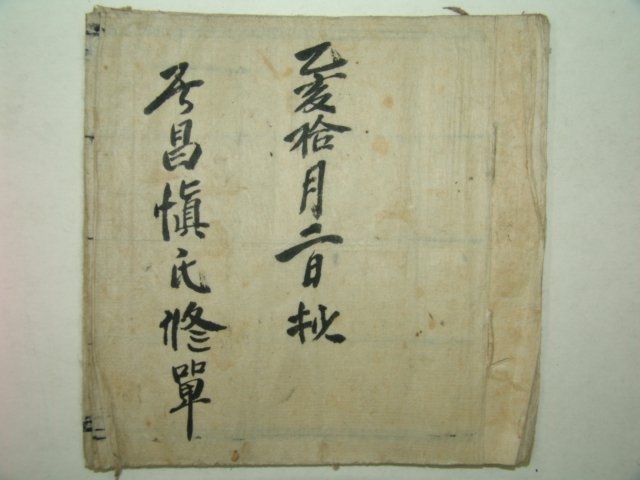 乙亥拾月二日抄
居昌愼氏修單